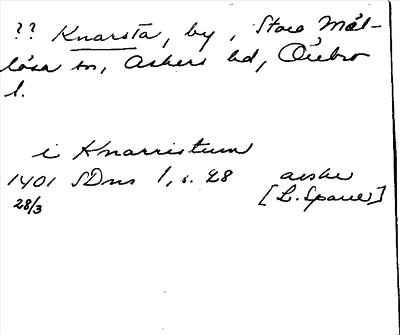 ?? Knarsta, by, Stora Mel-
lösa sn, Askers hd, Örebro
l.
i Knarristum
1401 SDns 1, s. 28 avskr
28/3 [L. Sparre]